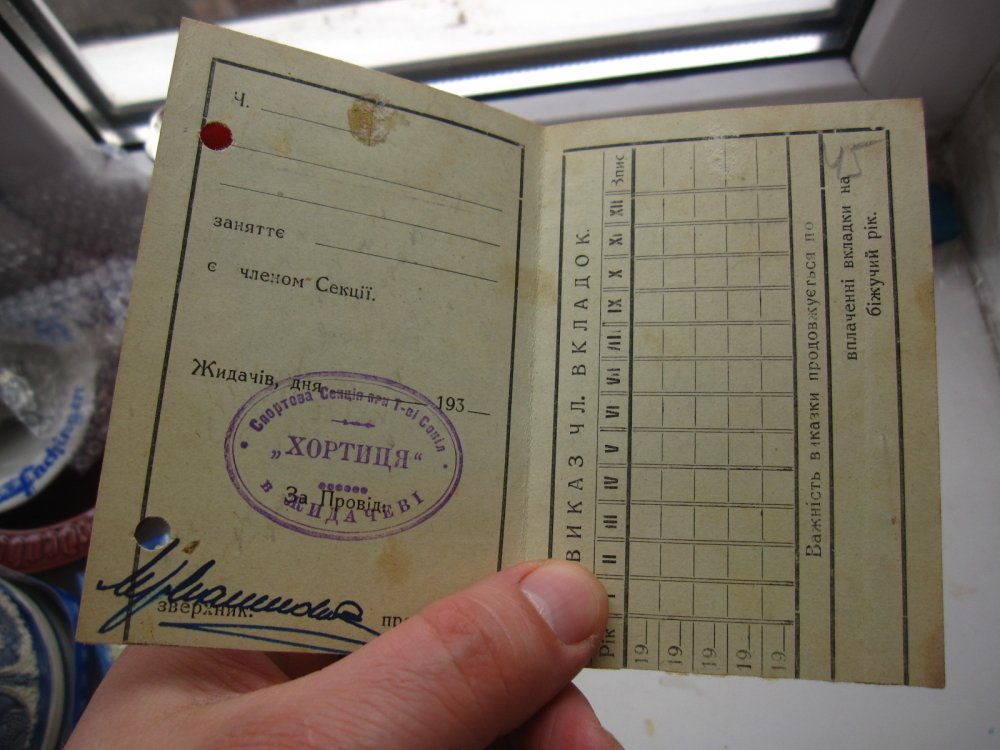 Ч.
заняттє
є членом Секції.
Жидачів, дня 193
Спортова Секція при Т-ві Сокіл
„ХОРТИЦЯ“
в ЖИДАЧЕВІ
За Провід:
зверхник:
ВИКАЗ ЧЛ. ВКЛАДОК.
Рік I II III IV V VI VII VIII IX X XI XII Зпис
19
19
19
19
19
Важність виказки продовжується по
вплаченні вкладки на
біжучий рік.
Fachingen